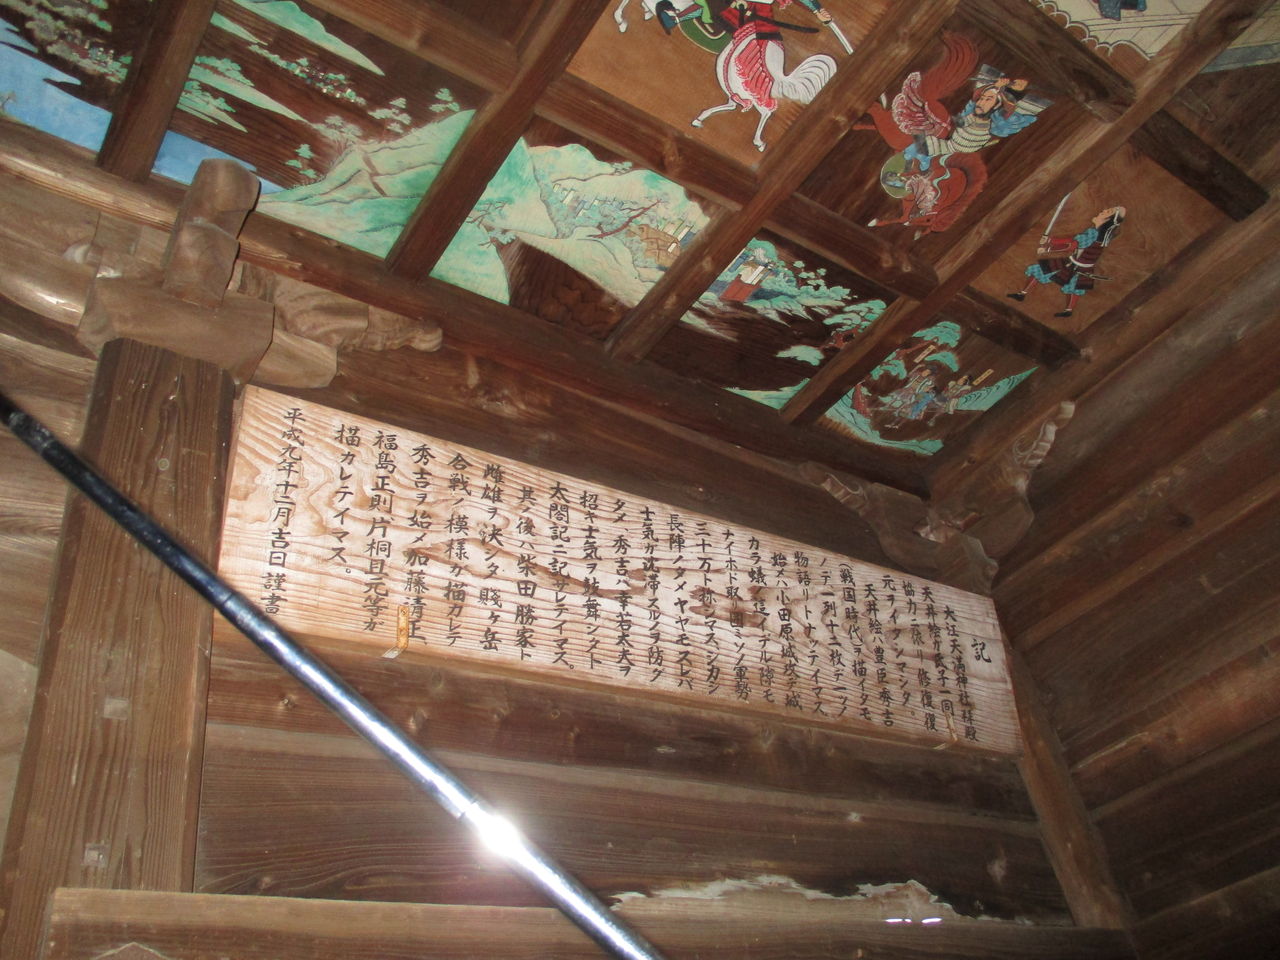 記
大江天満神社拝殿
天井絵ガ氏子一同
協力ニ依リ修復復
元ヲイタシマシタ。
天井絵ハ豊臣秀吉
(戦国時代ヲ描イタモ
ノデ一列十二枚デ一ツ
物語リトナッテイマス。
始メハ小田原城攻デ城
カラ蟻ノ這イデル隙モ
ナイホド取リ囲ミソノ軍勢
三十万ト称シマス、シカシ
長陣ノタメヤヤモスレバ
士気ガ沈滞スルヲ防グ
タメ秀吉ハ幸若太夫ヲ
招キ士気ヲ鼓舞シタト
太閤記ニ記サレテイマス。
其ノ後ハ柴田勝家ト
雌雄ヲ決シタ賤ヶ岳
合戦ノ模様ガ描カレテ
秀吉ヲ始メ加藤清正、
福島正則、片桐且元等ガ
描カレテイマス。
平成九年十二月吉日 謹書